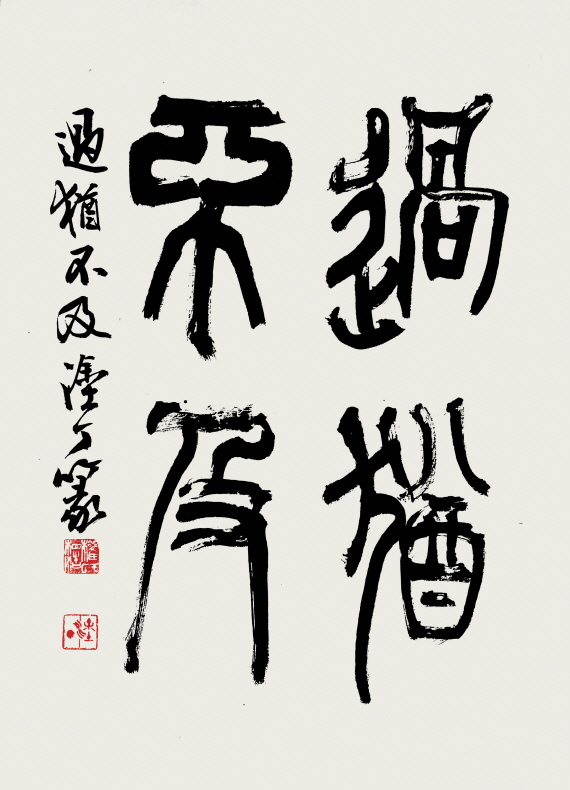 過猶
不及
過猶不及塗了篆